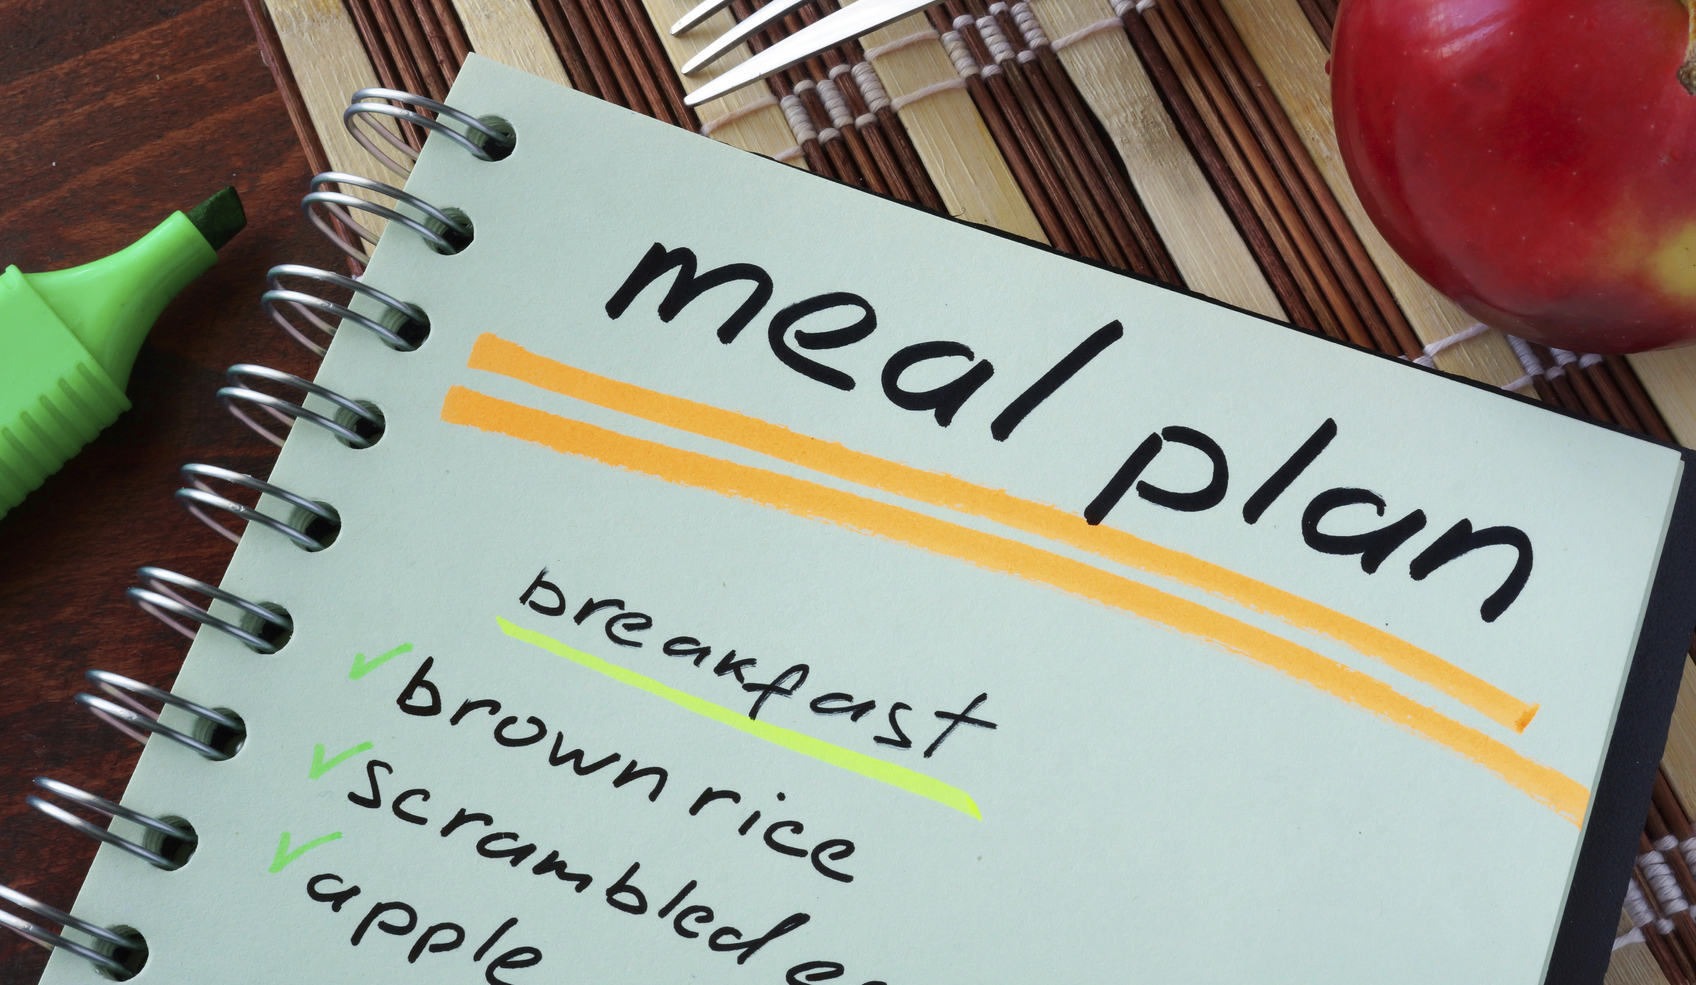 meal plan
breakfast
brown rice
scrambled
apple